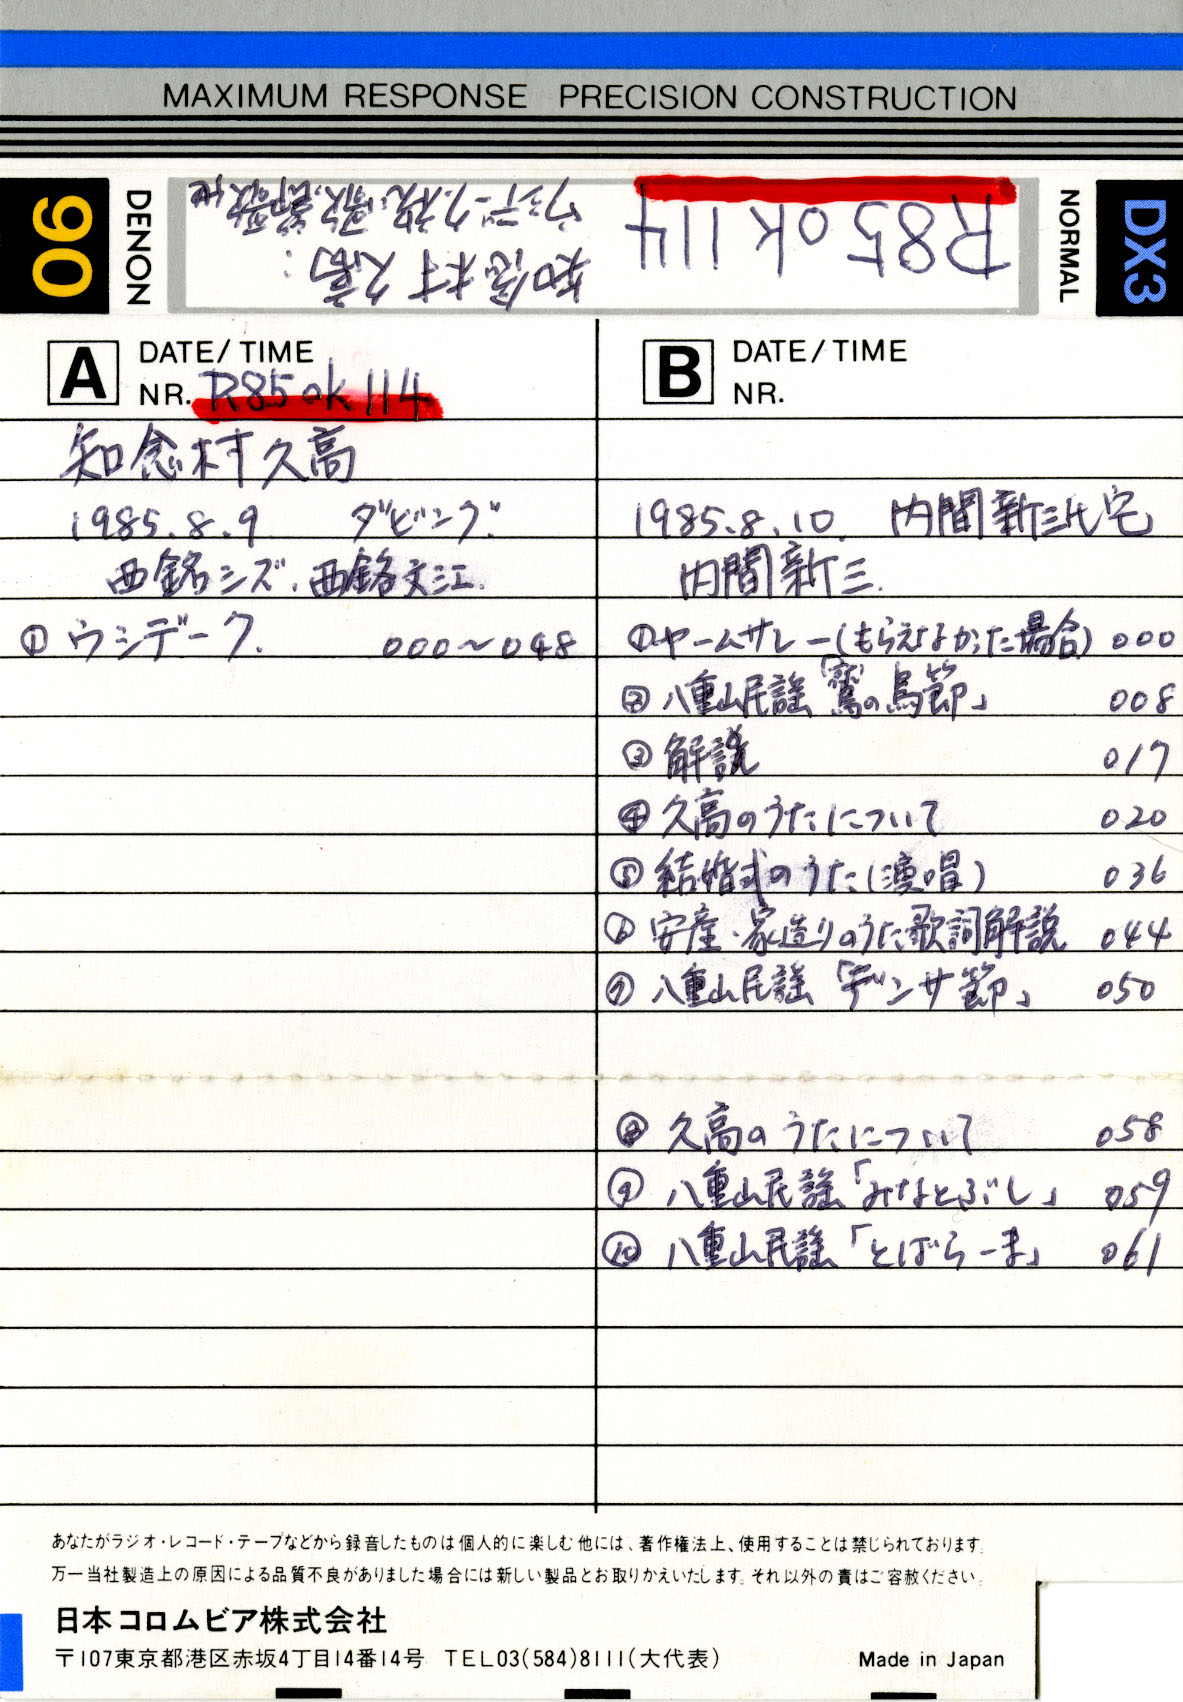 MAXIMUM RESPONSE PRECISION CONSTRUCTION
90
DENON
R85ok114
知念村久高:
ウシデーク、祝い歌、節歌他
NORMAL
DX3
A DATE/TIME
NR. R85ok114
知念村久高
1985.8.9 ダビング
西銘シズ、西銘文江
① ウシデーク. 000〜048
B DATE/TIME
NR.
1985.8.10. 内間新三氏宅
内間新三.
①ヤームサレー(もらえなかった場合) 000
②八重山民謡「鷲の鳥節」 008
③解説 017
④久高のうたについて 020
⑤結婚式のうた(演唱) 036
⑥安産・家造りのうた歌詞解説 044
⑦八重山民謡「デンサ節」 050
⑧久高のうたについて 058
⑨八重山民謡「みなとぶし」 059
⑩八重山民謡「とばらーま」 061
あなたがラジオ・レコード・テープなどから録音したものは個人的に楽しむ他には、著作権法上、使用することは禁じられております。
万一当社製造上の原因による品質不良がありました場合には新しい製品とお取りかえいたします。それ以外の責はご容赦ください。
日本コロムビア株式会社
〒107東京都港区赤坂4丁目14番14号 TEL03(584)8111(大代表)
Made in Japan